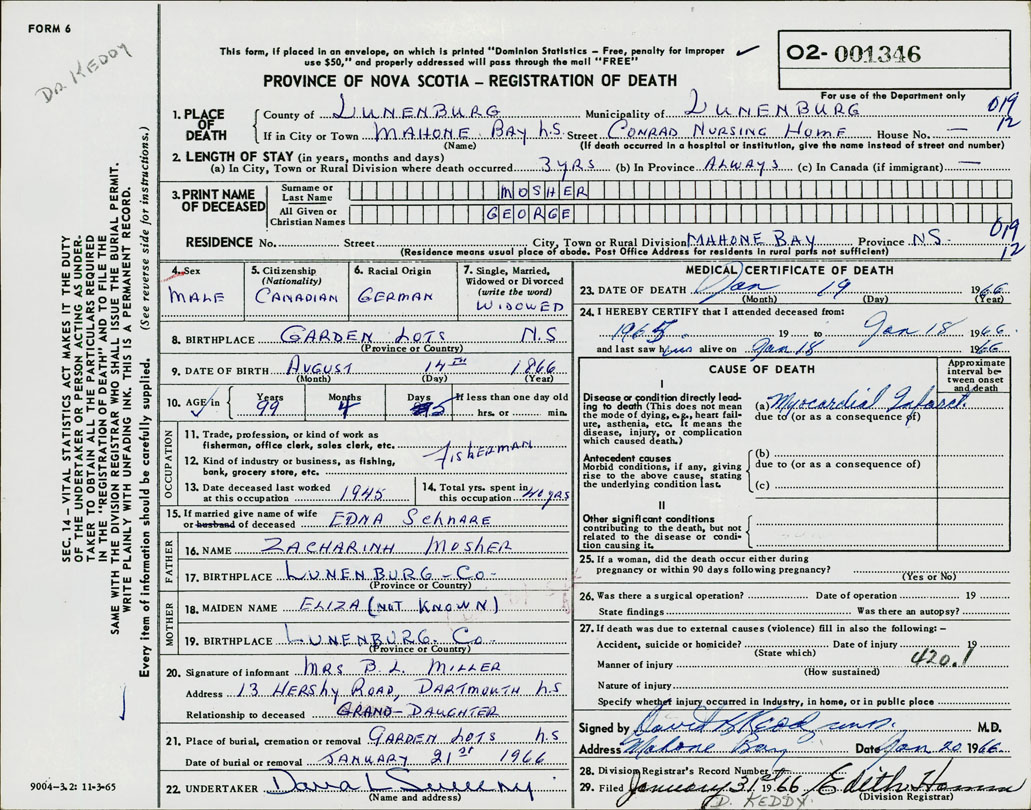 FORM 6
Dr. KEDDY
This form, if placed in an envelope, on which is printed "Dominion Statistics – Free, penalty for improper
use $50," and properly addressed will pass through the mail "FREE"
O2- 001346
PROVINCE OF NOVA SCOTIA – REGISTRATION OF DEATH
For use of the Department only
1. PLACE OF DEATH
County of LUNENBURG Municipality of LUNENBURG 019
If in City or Town MAHONE BAY N.S. Street CONRAD NURSING HOME House No. — 12
(Name) (If death occurred in a hospital or institution, give the name instead of street and number)
2. LENGTH OF STAY (in years, months and days)
(a) In City, Town or Rural Division where death occurred 3 YRS (b) In Province ALWAYS (c) In Canada (if immigrant) —
3. PRINT NAME OF DECEASED
Surname or Last Name MOSHER
All Given or Christian Names GEORGE
RESIDENCE No. Street City, Town or Rural Division MAHONE BAY Province NS. 019
(Residence means usual place of abode. Post Office Address for residents in rural parts not sufficient) 12
4. Sex
MALE
5. Citizenship (Nationality)
CANADIAN
6. Racial Origin
GERMAN
7. Single, Married, Widowed or Divorced (write the word)
WIDOWED
8. BIRTHPLACE GARDEN LOTS N.S
(Province or Country)
9. DATE OF BIRTH AUGUST 14TH 1866
(Month) (Day) (Year)
10. AGE in Years Months Days If less than one day old
99 4 5 hrs. or min.
OCCUPATION
11. Trade, profession, or kind of work as
fisherman, office clerk, sales clerk, etc.
FISHERMAN
12. Kind of industry or business, as fishing,
bank, grocery store, etc.
13. Date deceased last worked
at this occupation 1945
14. Total yrs. spent in
this occupation 40 YRS
15. If married give name of wife
or husband of deceased EDNA SCHNARE
FATHER
16. NAME ZACHARINH MOSHER
17. BIRTHPLACE LUNENBURG - CO -
(Province or Country)
MOTHER
18. MAIDEN NAME ELIZA (NOT KNOWN)
19. BIRTHPLACE LUNENBURG. CO
(Province or Country)
20. Signature of informant MRS B. L. MILLER
Address 13 HERSHY ROAD, DARTMOUTH N.S
Relationship to deceased GRAND-DAUGHTER
21. Place of burial, cremation or removal GARDEN LOTS N.S
Date of burial or removal JANUARY 21st 1966
22. UNDERTAKER
(Name and address)
MEDICAL CERTIFICATE OF DEATH
23. DATE OF DEATH Jan 19 1966
(Month) (Day) (Year)
24. I HEREBY CERTIFY that I attended deceased from:
1965 19 to Jan 18 1966
and last saw him alive on Jan 18 1966
CAUSE OF DEATH
Approximate interval between onset and death
I
Disease or condition directly lead-
ing to death (This does not mean
the mode of dying, e.g., heart fail-
ure, asthenia, etc. It means the
disease, injury, or complication
which caused death.)
(a) Myocardial Infarct.
due to (or as a consequence of)
Antecedent causes
Morbid conditions, if any, giving
rise to the above cause, stating
the underlying condition last.
(b)
due to (or as a consequence of)
(c)
II
Other significant conditions
contributing to the death, but not
related to the disease or condi-
tion causing it.
25. If a woman, did the death occur either during
pregnancy or within 90 days following pregnancy?
(Yes or No)
26. Was there a surgical operation? Date of operation 19
State findings Was there an autopsy?
27. If death was due to external causes (violence) fill in also the following: –
Accident, suicide or homicide? Date of injury 19
(State which) 420.1
Manner of injury
(How sustained)
Nature of injury
Specify whether injury occurred in Industry, in home, or in public place
Signed by M.D.
Address Mahone Bay Date Jan 20 1966
28. Division Registrar's Record Number
29. Filed January 31st 1966 Edith
D. KEDDY. (Division Registrar)
SEC. 14 – VITAL STATISTICS ACT MAKES IT THE DUTY
OF THE UNDERTAKER OR PERSON ACTING AS UNDER-
TAKER TO OBTAIN ALL THE PARTICULARS REQUIRED
IN THE "REGISTRATION OF DEATH" AND TO FILE THE
SAME WITH THE DIVISION REGISTRAR WHO SHALL ISSUE THE BURIAL PERMIT.
WRITE PLAINLY WITH UNFADING INK. THIS IS A PERMANENT RECORD.
Every item of information should be carefully supplied. (See reverse side for instructions.)
9004–3.2: 11-3-65